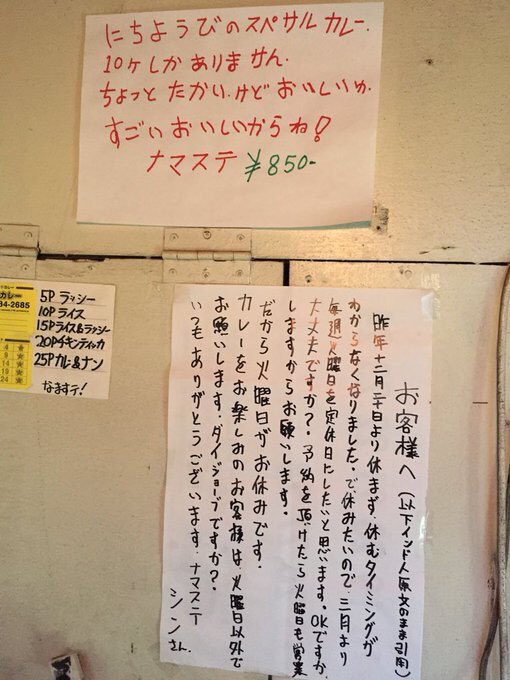 にちようびのスペサルカレー.
10ケしかありません.
ちょっとたかい.けどおいしいゅ.
すごいおいしいからね!
ナマステ ¥850-
カレー
34-2685
4
9
14
19
24
5P ラッシー
10P ライス
15Pライス&ラッシー
20Pチキンティッカ
25Pカレー&ナン
なますテ!
お客様へ(以下インド人原文のまま引用)
昨年十二月二十日より休まず、休むタイミングが
わからなくなりました。で休みたいので、三月より
毎週火曜日を定休日にしたいと思います。OKですか.
大丈夫ですか?.予約を頂けたら火曜日も営業
しますからお願いします.
だから火曜日がお休みです.
カレーをお楽しみのお客様は、火曜日以外で
お願いします.ダイジョーブですか?.
いつもありがとうございます.ナマステ
シンさん.